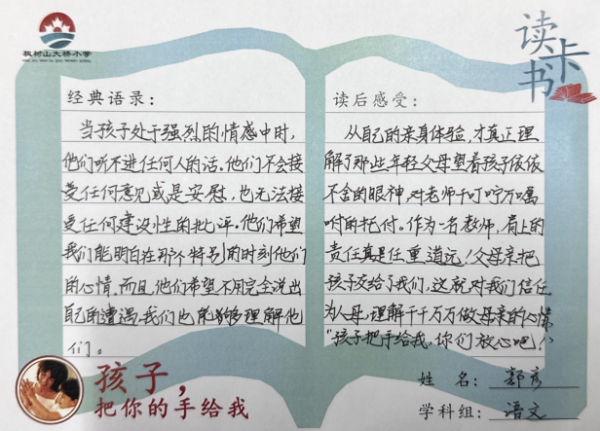 读书卡
经典语录：
当孩子处于强烈的情感中时，
他们听不进任何人的话。他们不会接
受任何意见或是安慰，也无法接
受任何建设性的批评。他们希望
我们能明白在那个特别的时刻他们
的心情。而且，他们希望不用完全说出
自己的遭遇，我们也能够理解他
们。
读后感受：
从自己的亲身体验，才真正理
解了那些年轻父母望着孩子依依
不舍的眼神，对老师千叮咛万嘱
咐的托付。作为一名教师，肩上的
责任真是任重道远！父母亲把
孩子交给了我们，这就对我们信任
为人母，理解千千万万做母亲的心情
“孩子把手给我，你们放心吧！”
孩子，
把你的手给我
姓 名：
学科组：语文